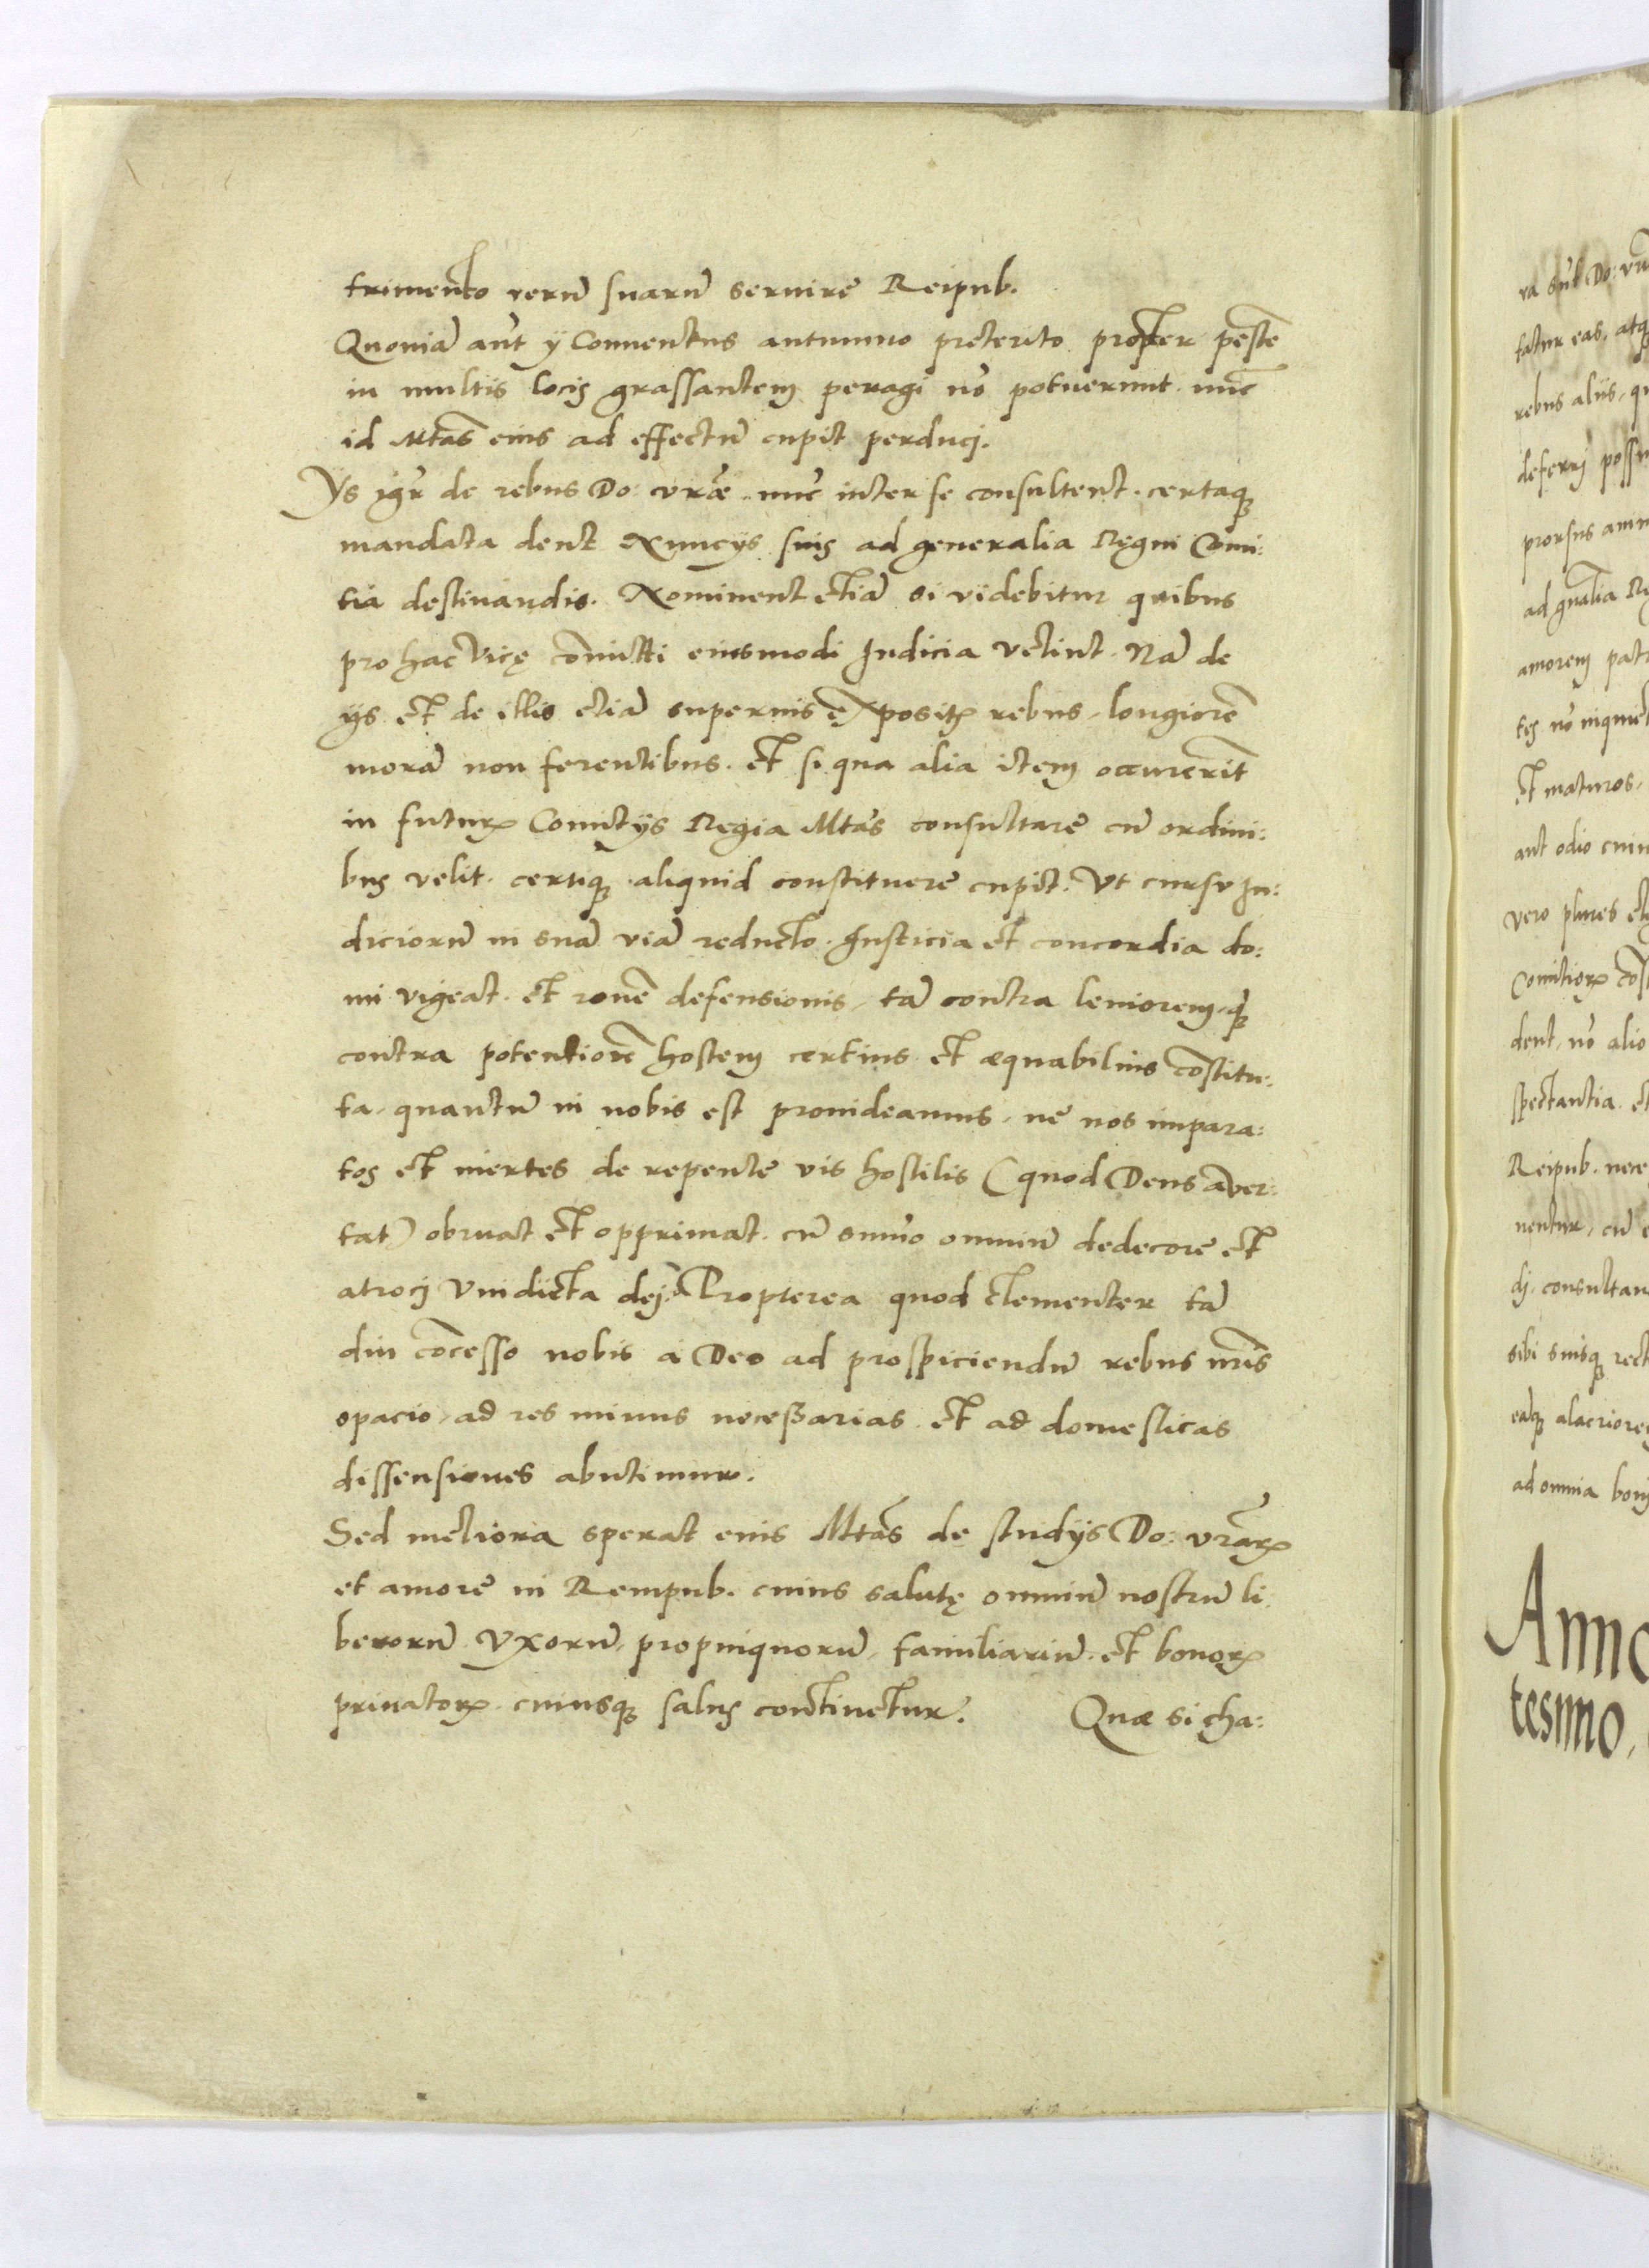 trimento rerū suarū seruire Reipub.
Quoniā aūt ij Conuentus autumno preterito propter pestē
in multis locis grassantem peragi nō potuerunt. nūc
id Mtas eius ad effectū cupit perduci.
Ys igr̄ de rebus Do: vr̄ae. nūc inter se consultent. certaq;
mandata dent Nuncijs suis ad generalia Regni Comi:
tia destinandis. Nominent etiā si videbitur quibus
pro hac vice cōmitti eiusmodi Iudicia velint. Nā de
ijs et de illis etiā superius expositꝭ rebus, longiorē
morā non ferentibus. et si qua alia item occurrerīt
in futurꝭ Comitijs Regia Mtas consultare cū ordini:
bus velit. certiq; aliquid constituere cupit. Vt cursu Iu:
diciorū in suā viā reducto. Iusticia et concordia do:
mi vigeat. et rōne defensionis, tā contra leuiorem, q̄
contra potentiorē hostem certius et aequabilius cōstitu:
ta, quantū in nobis est prouideamus, ne nos impara:
tos et inertes de repente vis hostilis (quod Deus auer:
tat) obruat et opprimat. cū sūmo omniū dedecore et
atroci vindicta dei. Propterea quod clementer tā
diu cōcesso nobis à Deo ad prospiciendū rebus nr̄is
spacio, ad res minus necessarias et ad domesticas
dissensiones abutimur.
Sed meliora sperat eius Mtas de studijs Do: vr̄arꝝ
et amore in Rempub. cuius salute omniū nostrū li
berorū vxorū, propinquorū, familiariū et bonorꝝ
priuatorꝝ cuiusq; salus continetur. Quae si cha:
ra sūt Do: vr̄
fatur eas, atq;
rebus alijs, qu
deferri possu
prorsus anim
ad gn̄alia Re
amorem patr
tes nō inquiet
et maturos,
aut odio cuiu
vero plures et
Comitiorꝝ cōs
dent, nō alio
spectantia. et
Reipub. nece
nentur, cū e
di, consultan
sibi suisq; rect
eaq; alacriore
ad omnia boni
Anno
tesimo,